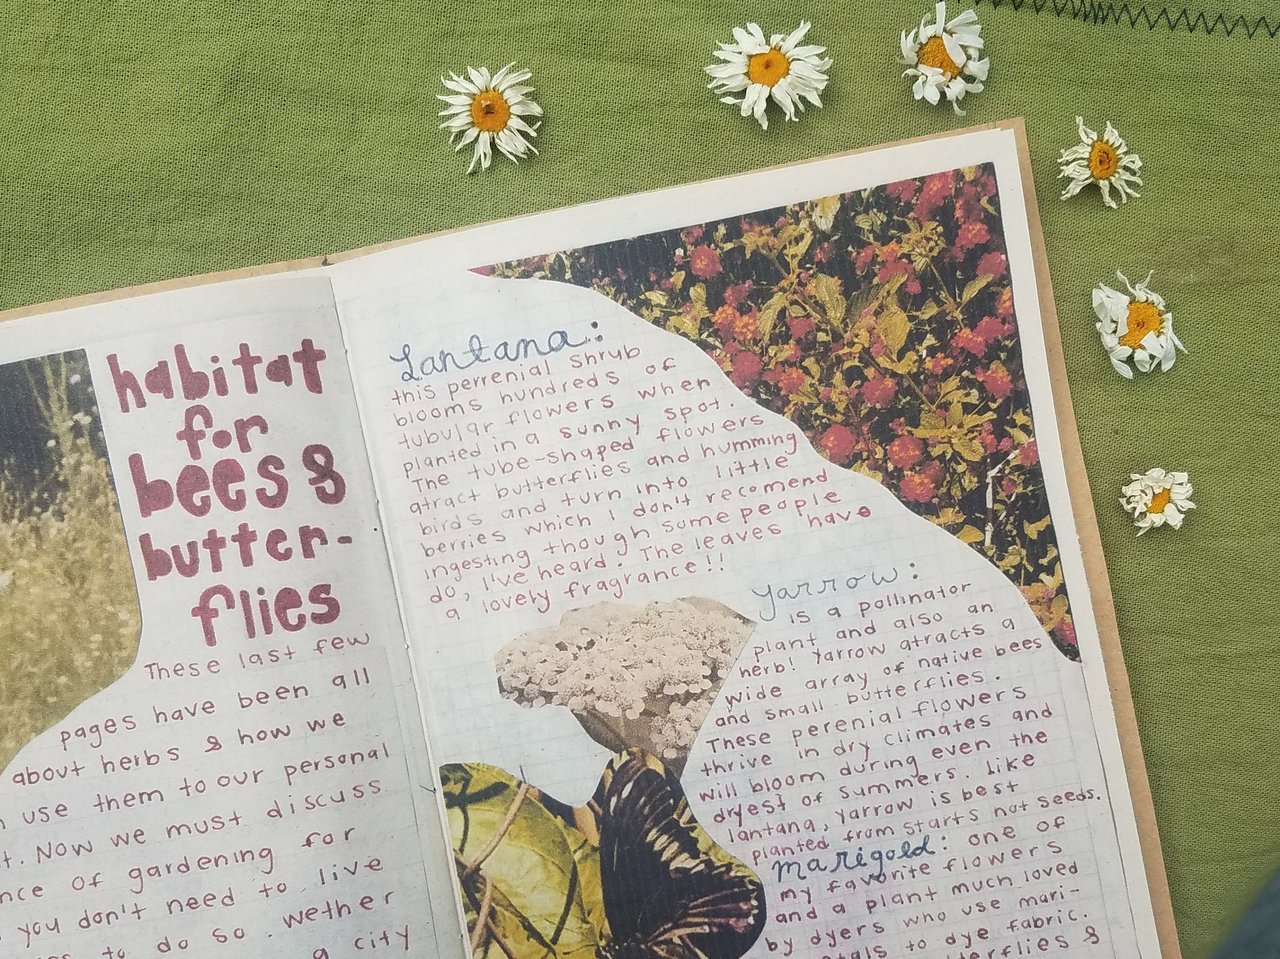 habitat
for
bees &
butter-
flies
These last few
pages have been all
about herbs & how we
use them to our personal
Now we must discuss
of gardening for
you don't need to live
to do so. wether
a city
Lantana:
this perrenial shrub
blooms hundreds of
tubular flowers when
planted in a sunny spot.
The tube-shaped flowers
atract butterflies and humming
birds and turn into little
berries which I don't recomend
ingesting though some people
do, I've heard. The leaves have
a lovely fragrance!!
Yarrow:
is a pollinator
plant and also an
herb! Yarrow atracts a
wide array of native bees
and small butterflies.
These perenial flowers
thrive in dry climates and
will bloom during even the
dryest of summers. Like
lantana, yarrow is best
planted from starts not seeds.
marigold: one of
my favorite flowers
and a plant much loved
by dyers who use mari-
to dye fabric.
&